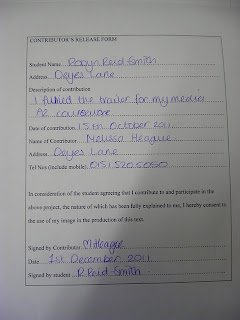 CONTRIBUTOR'S RELEASE FORM
Student Name Robyn Reid-Smith
Address Deyes Lane
Description of contribution
I filmed the trailer for my media
A2 coursework
Date of contribution 15th October 2011
Name of Contributor Melissa Heague
Address Deyes Lane
Tel Nos (include mobile) 0151 520 5050
In consideration of the student agreeing that I contribute to and participate in the
above project, the nature of which has been fully explained to me, I hereby consent to
the use of my image in the production of this text.
Signed by Contributor MHeague
Date 1st December 2011
Signed by student R.Reid-Smith